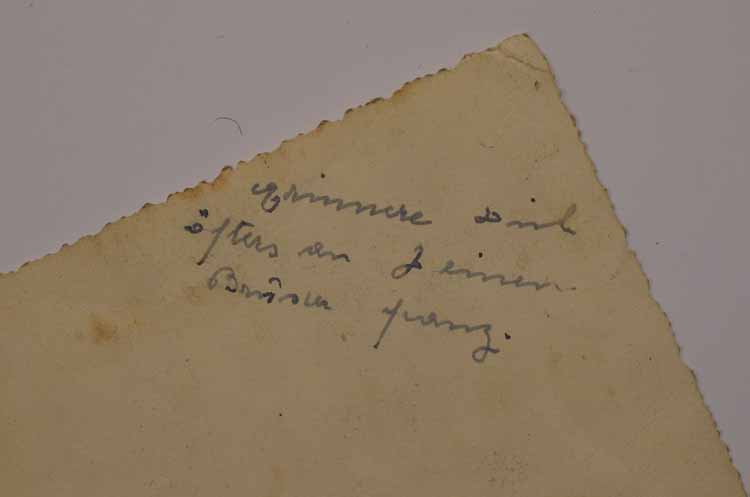 Erinnere dich
öfters an Deinen
Bruder Franz.